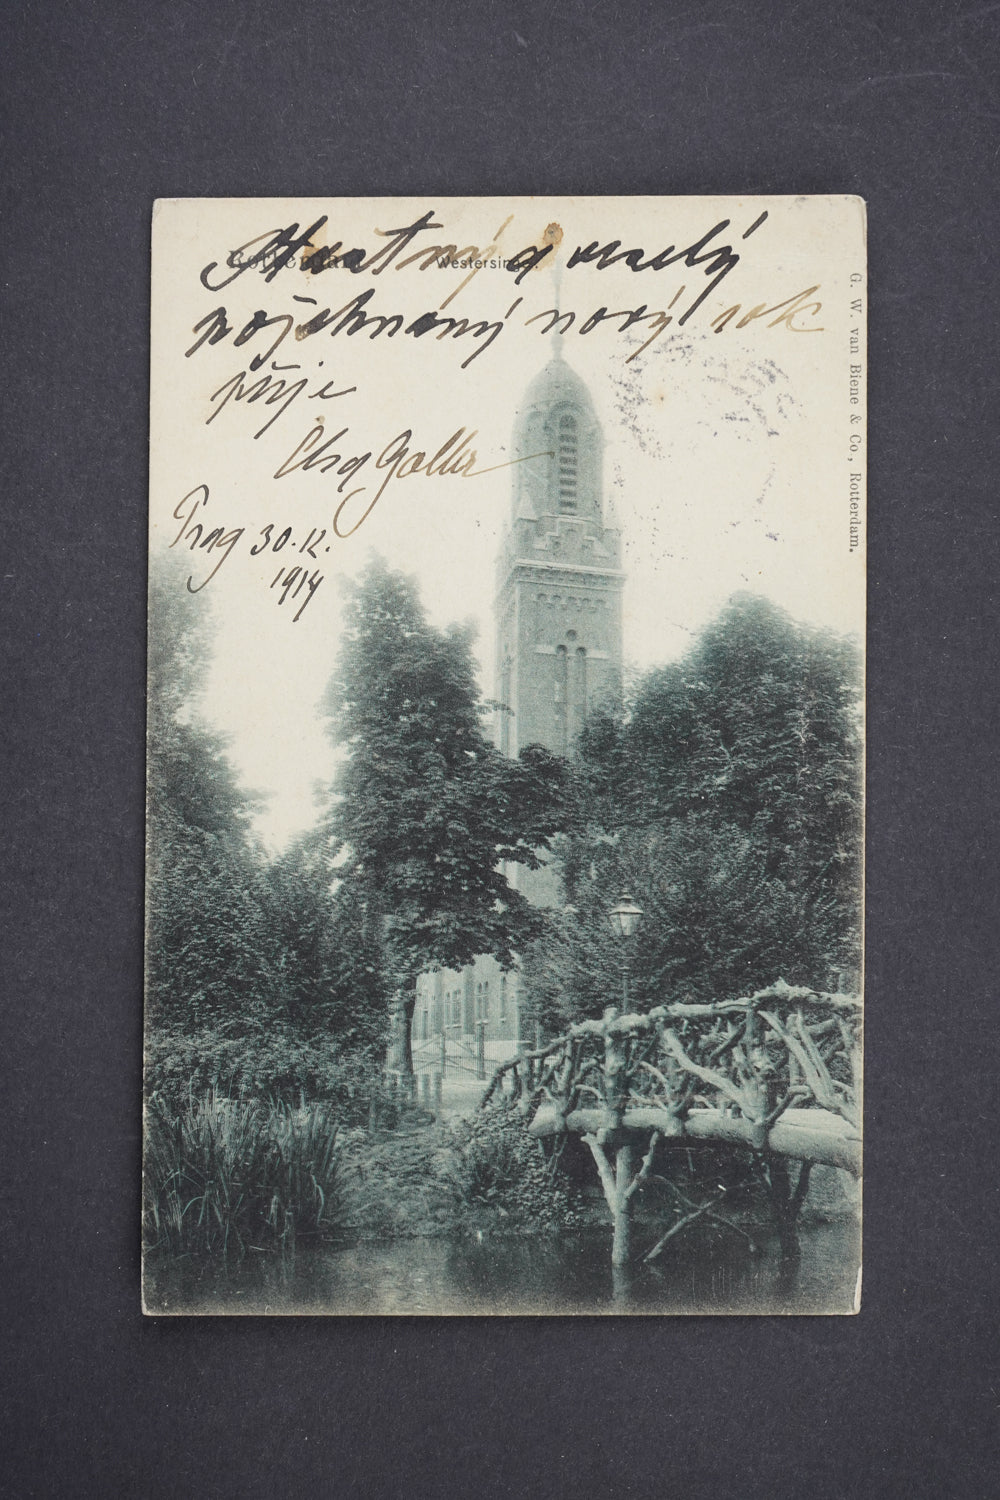 Rotterdam Westersingel.
Šťastný a veselý
požehnaný nový rok
přeje
Elsa Goller
Prag 30.12.
1914
G. W. van Biene & Co., Rotterdam.